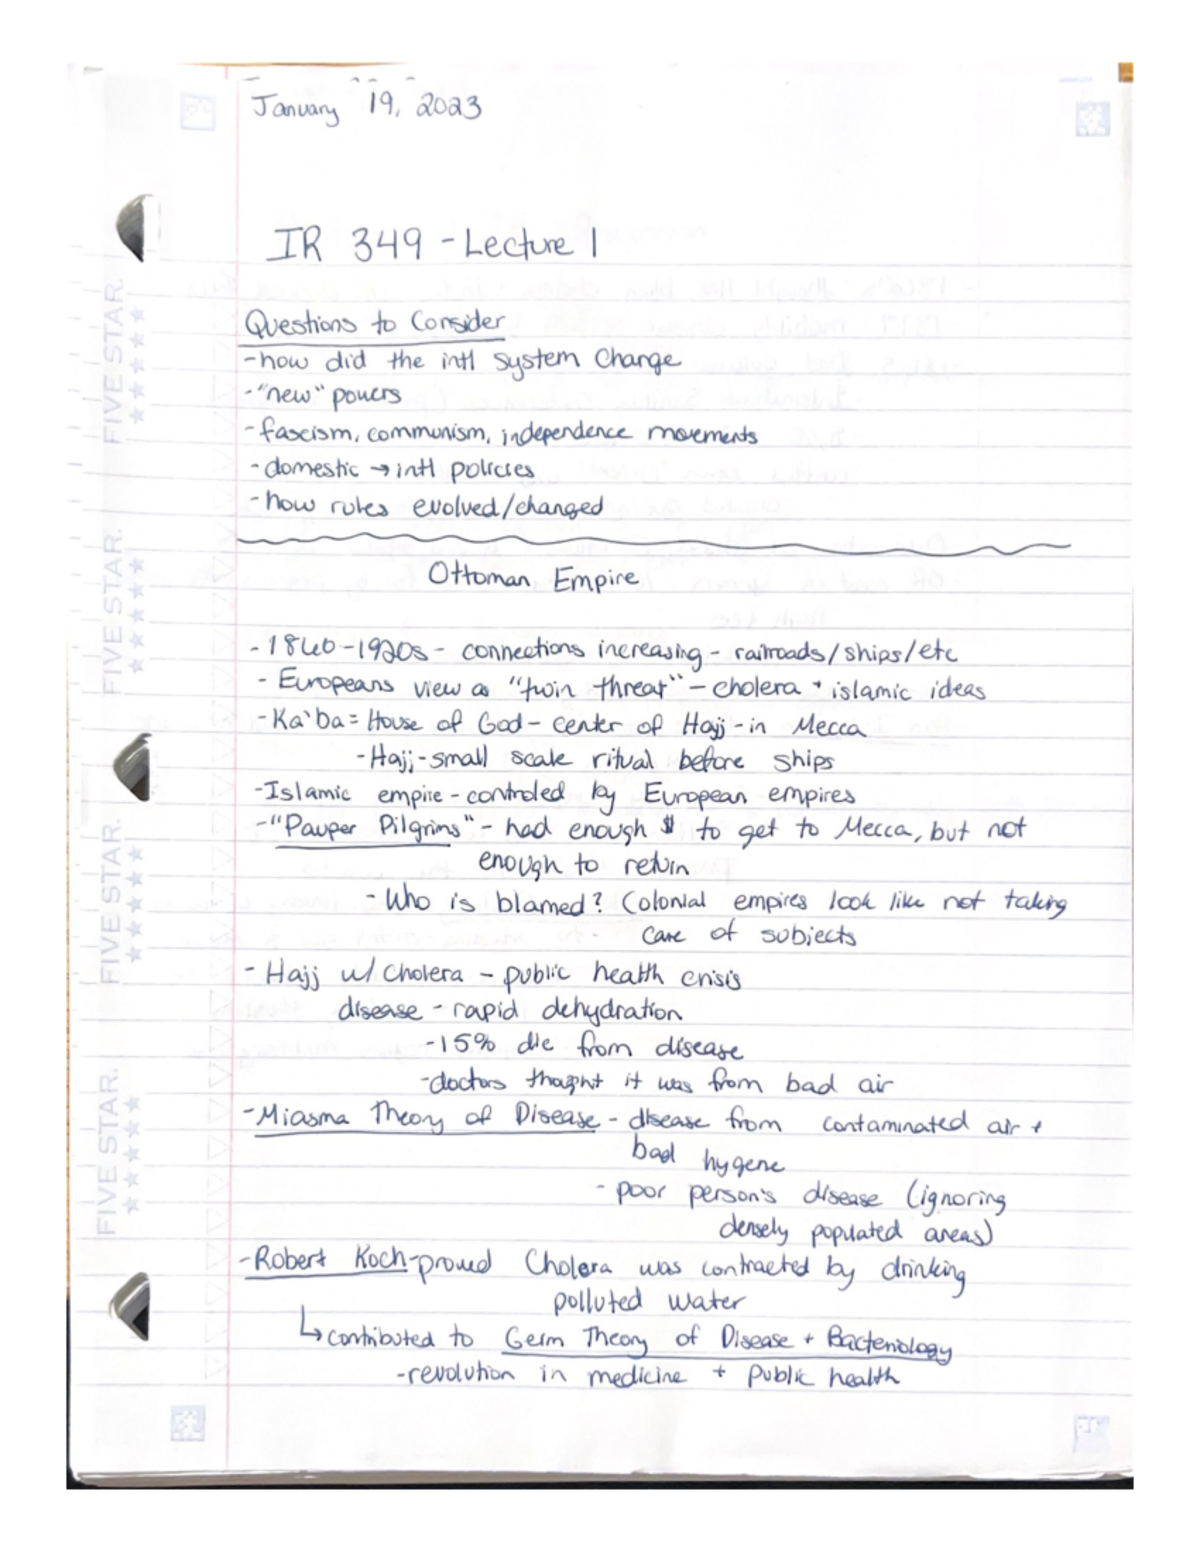 January 19, 2023
IR 349 - Lecture 1
Questions to Consider
- how did the intl system change
- "new" powers
- fascism, communism, independence movements
- domestic → intl policies
- how rules evolved/changed
Ottoman Empire
- 1860-1920s - connections increasing - railroads/ships/etc
- Europeans view as "twin threat" - cholera + islamic ideas
- Ka'ba = House of God - center of Hajj - in Mecca
- Hajj - small scale ritual before ships
- Islamic empire - controled by European empires
- "Pauper Pilgrims" - had enough $ to get to Mecca, but not
enough to return
- Who is blamed? Colonial empires look like not taking
care of subjects
- Hajj w/ Cholera - public health crisis
disease - rapid dehydration
- 15% die from disease
- doctors thought it was from bad air
- Miasma Theory of Disease - disease from contaminated air +
bad hygene
- poor person's disease (ignoring
densely populated areas)
- Robert Koch - proved Cholera was contracted by drinking
polluted water
↳ contributed to Germ Theory of Disease + Bacteriology
- revolution in medicine + public health
FIVE STAR.
FIVE STAR.
FIVE STAR.
FIVE STAR.